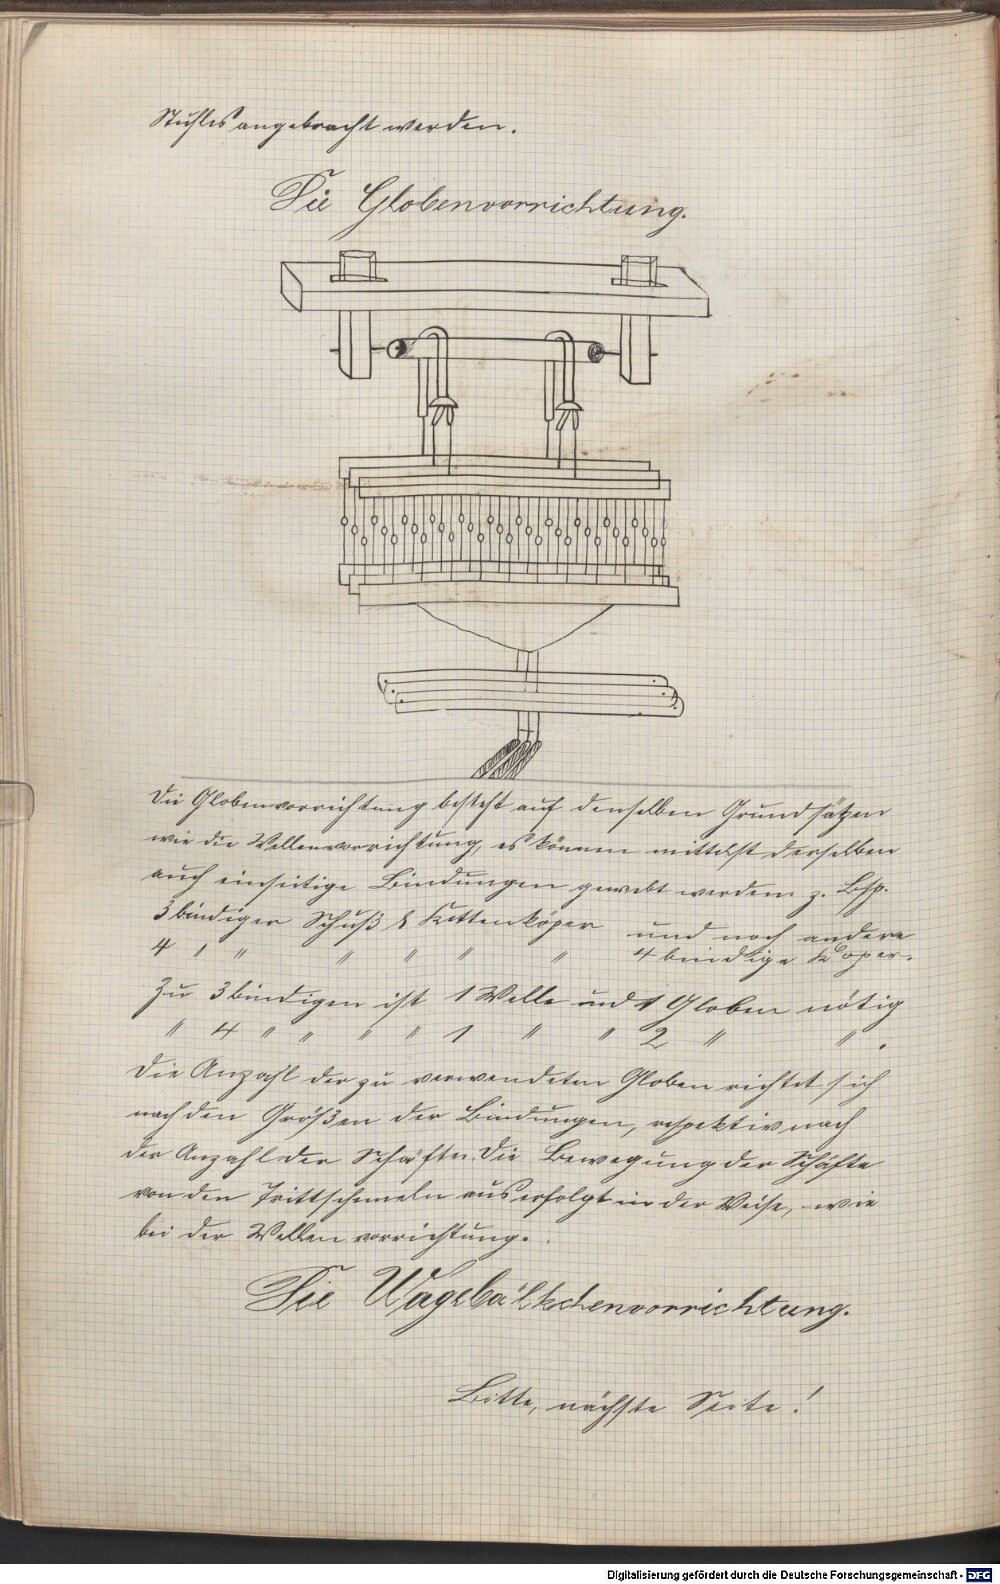 Stuhles angebracht werden.
Die Globenvorrichtung.
Die Globenvorrichtung besteht auf denselben Grundsätzen
wie die Wellenvorrichtung, es können mittelst derselben
auch einseitige Bindungen gewebt werden z. Bsp.
3 bindiger Schuß & Kettenköper und noch andere
4 " " " " " " 4 bindige Köper.
Zu 3 bindigen ist 1 Welle und 1 Globen nötig
" 4 " " " " 1 " " 2 " " .
Die Anzahl der zu verwendeten Globen richtet sich
nach den Größen der Bindungen, respektiv nach
der Anzahl der Schäfte. Die Bewegung der Schäfte
von den Trittschemeln aus erfolgt in der Weise, wie
bei der Wellenvorrichtung.
Die Wagebälkchenvorrichtung.
Bitte, nächste Seite!
Digitalisierung gefördert durch die Deutsche Forschungsgemeinschaft - DFG